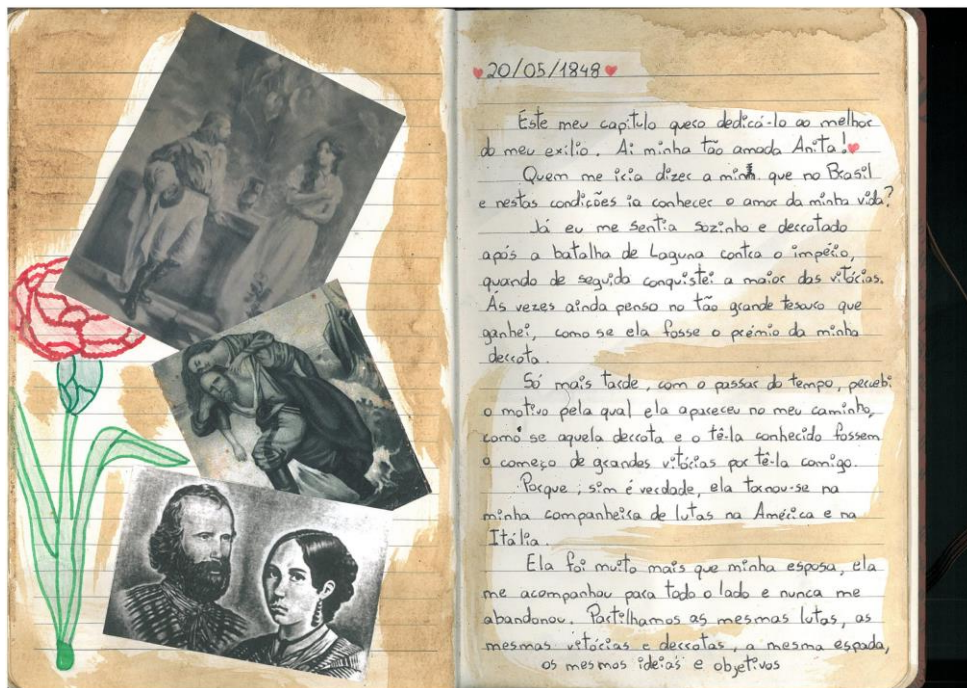 20/05/1848
Este meu capítulo quero dedicá-lo ao melhor
do meu exílio. Ai minha tão amada Anita!
Quem me iria dizer a mim que no Brasil
e nestas condições ia conhecer o amor da minha vida?
Já eu me sentia sozinho e derrotado
após a batalha de Laguna contra o império,
quando de seguida conquistei a maior das vitórias.
Às vezes ainda penso no tão grande tesouro que
ganhei, como se ela fosse o prémio da minha
derrota.
Só mais tarde, com o passar do tempo, percebi
o motivo pela qual ela apareceu no meu caminho,
como se aquela derrota e o tê-la conhecido fossem
o começo de grandes vitórias por tê-la comigo.
Porque, sim é verdade, ela tornou-se na
minha companheira de lutas na América e na
Itália.
Ela foi muito mais que minha esposa, ela
me acompanhou para todo o lado e nunca me
abandonou. Partilhamos as mesmas lutas, as
mesmas vitórias e derrotas, a mesma espada,
os mesmos ideias e objetivos